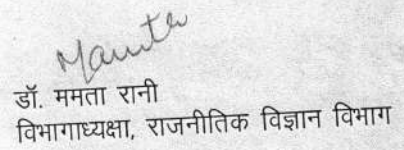 Mamta
डॉ. ममता रानी
विभागाध्यक्षा, राजनीतिक विज्ञान विभाग